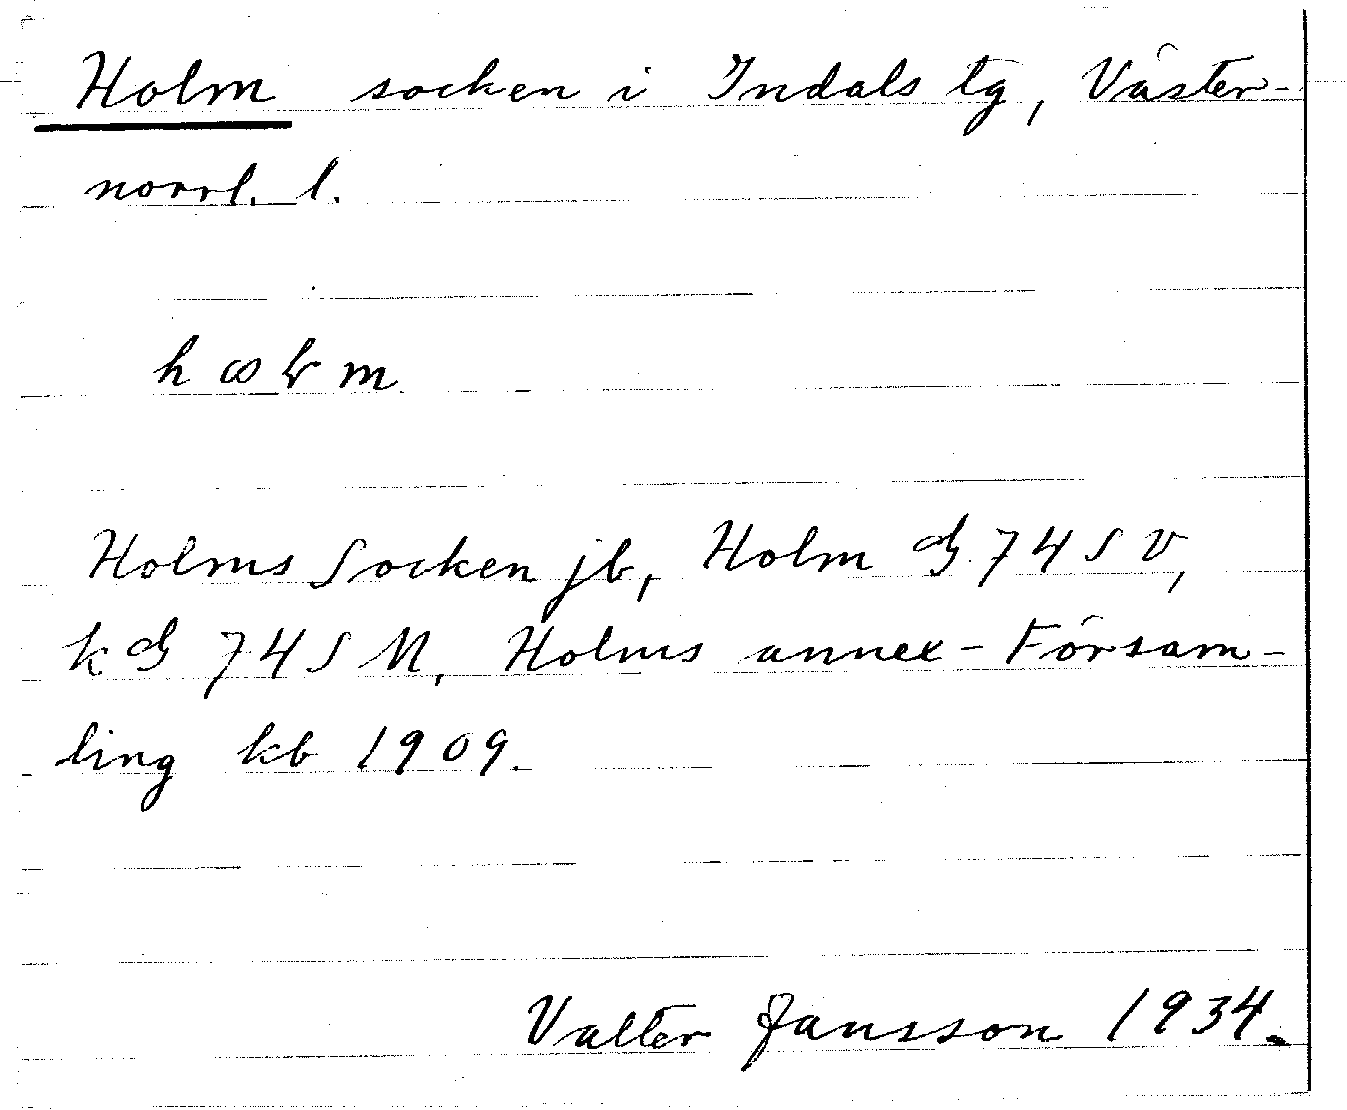 Holm socken i Indals tg, Väster-
norrl. l.
Holms Socken jb, Holm GS 74 SV,
k GS 74 S M, Holms annex-Försam-
ling kb 1909.
Valter Jansson 1934.